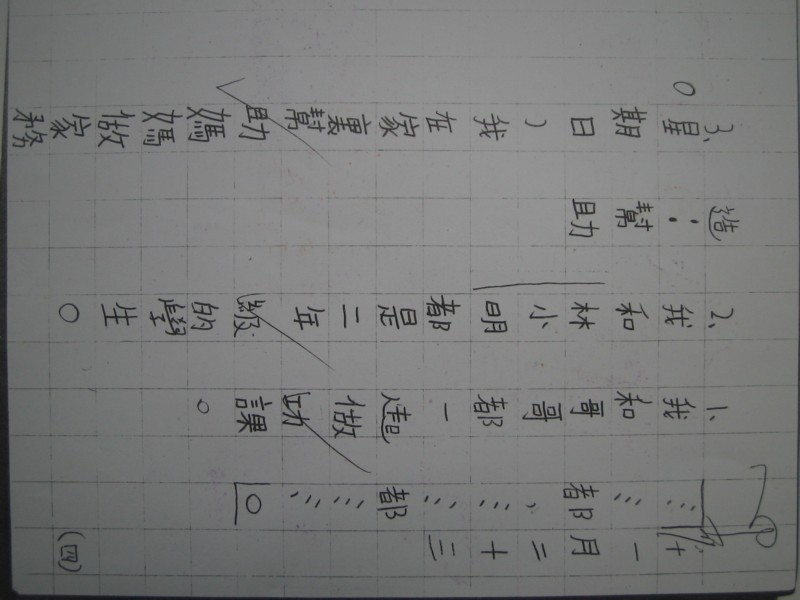 十一月二十三(四)
……都……，……都……。
1、我和哥哥都一起做功課。
2、我和林小明都是二年級的學生。
造：幫助
3、星期日，我在家裏幫助媽媽做家務
。